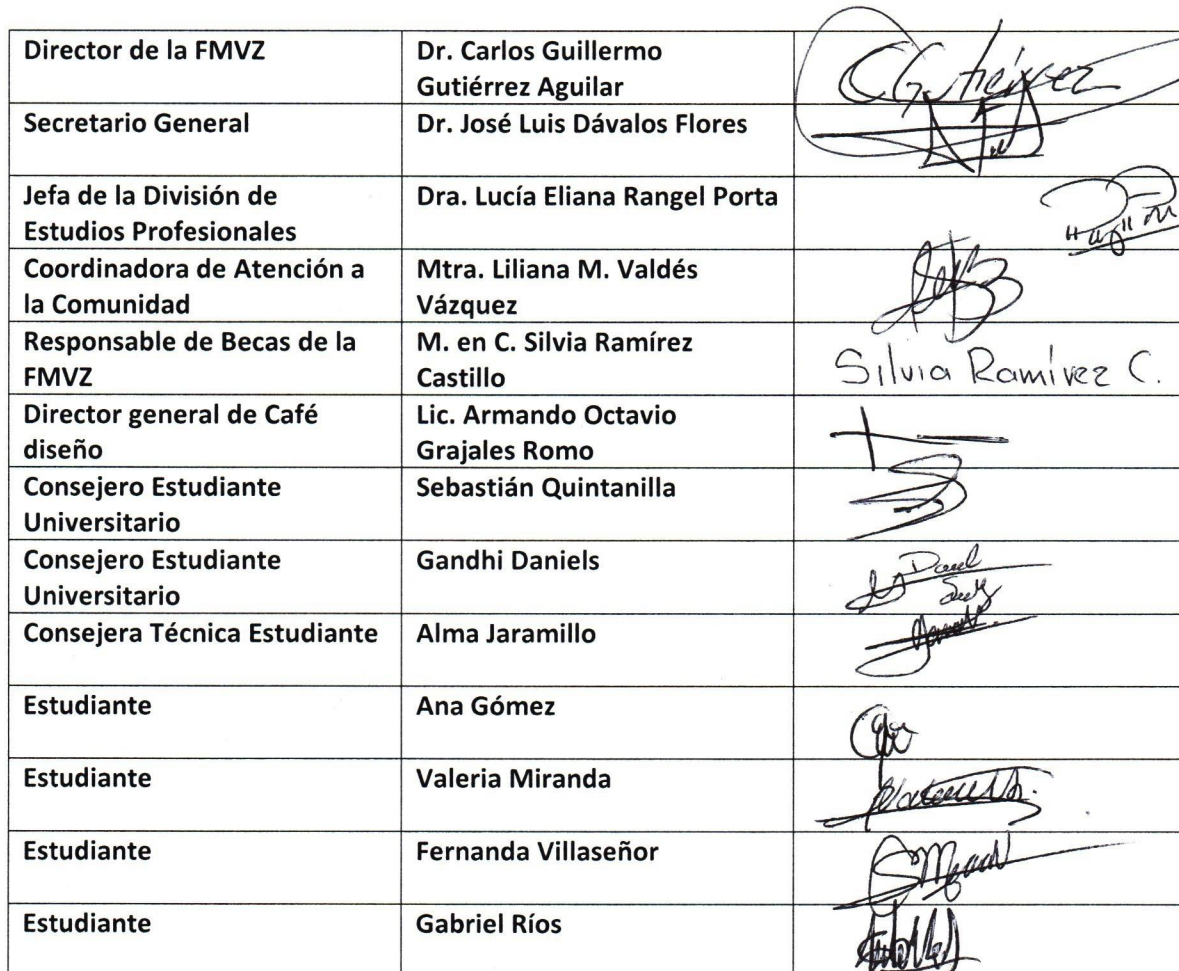 Director de la FMVZ
Dr. Carlos Guillermo
Gutiérrez Aguilar
CGutiérrez
Secretario General
Dr. José Luis Dávalos Flores
Jefa de la División de
Estudios Profesionales
Dra. Lucía Eliana Rangel Porta
Coordinadora de Atención a
la Comunidad
Mtra. Liliana M. Valdés
Vázquez
Responsable de Becas de la
FMVZ
M. en C. Silvia Ramírez
Castillo
Silvia Ramírez C.
Director general de Café
diseño
Lic. Armando Octavio
Grajales Romo
Consejero Estudiante
Universitario
Sebastián Quintanilla
Consejero Estudiante
Universitario
Gandhi Daniels
Consejera Técnica Estudiante
Alma Jaramillo
Estudiante
Ana Gómez
Estudiante
Valeria Miranda
Estudiante
Fernanda Villaseñor
Estudiante
Gabriel Ríos